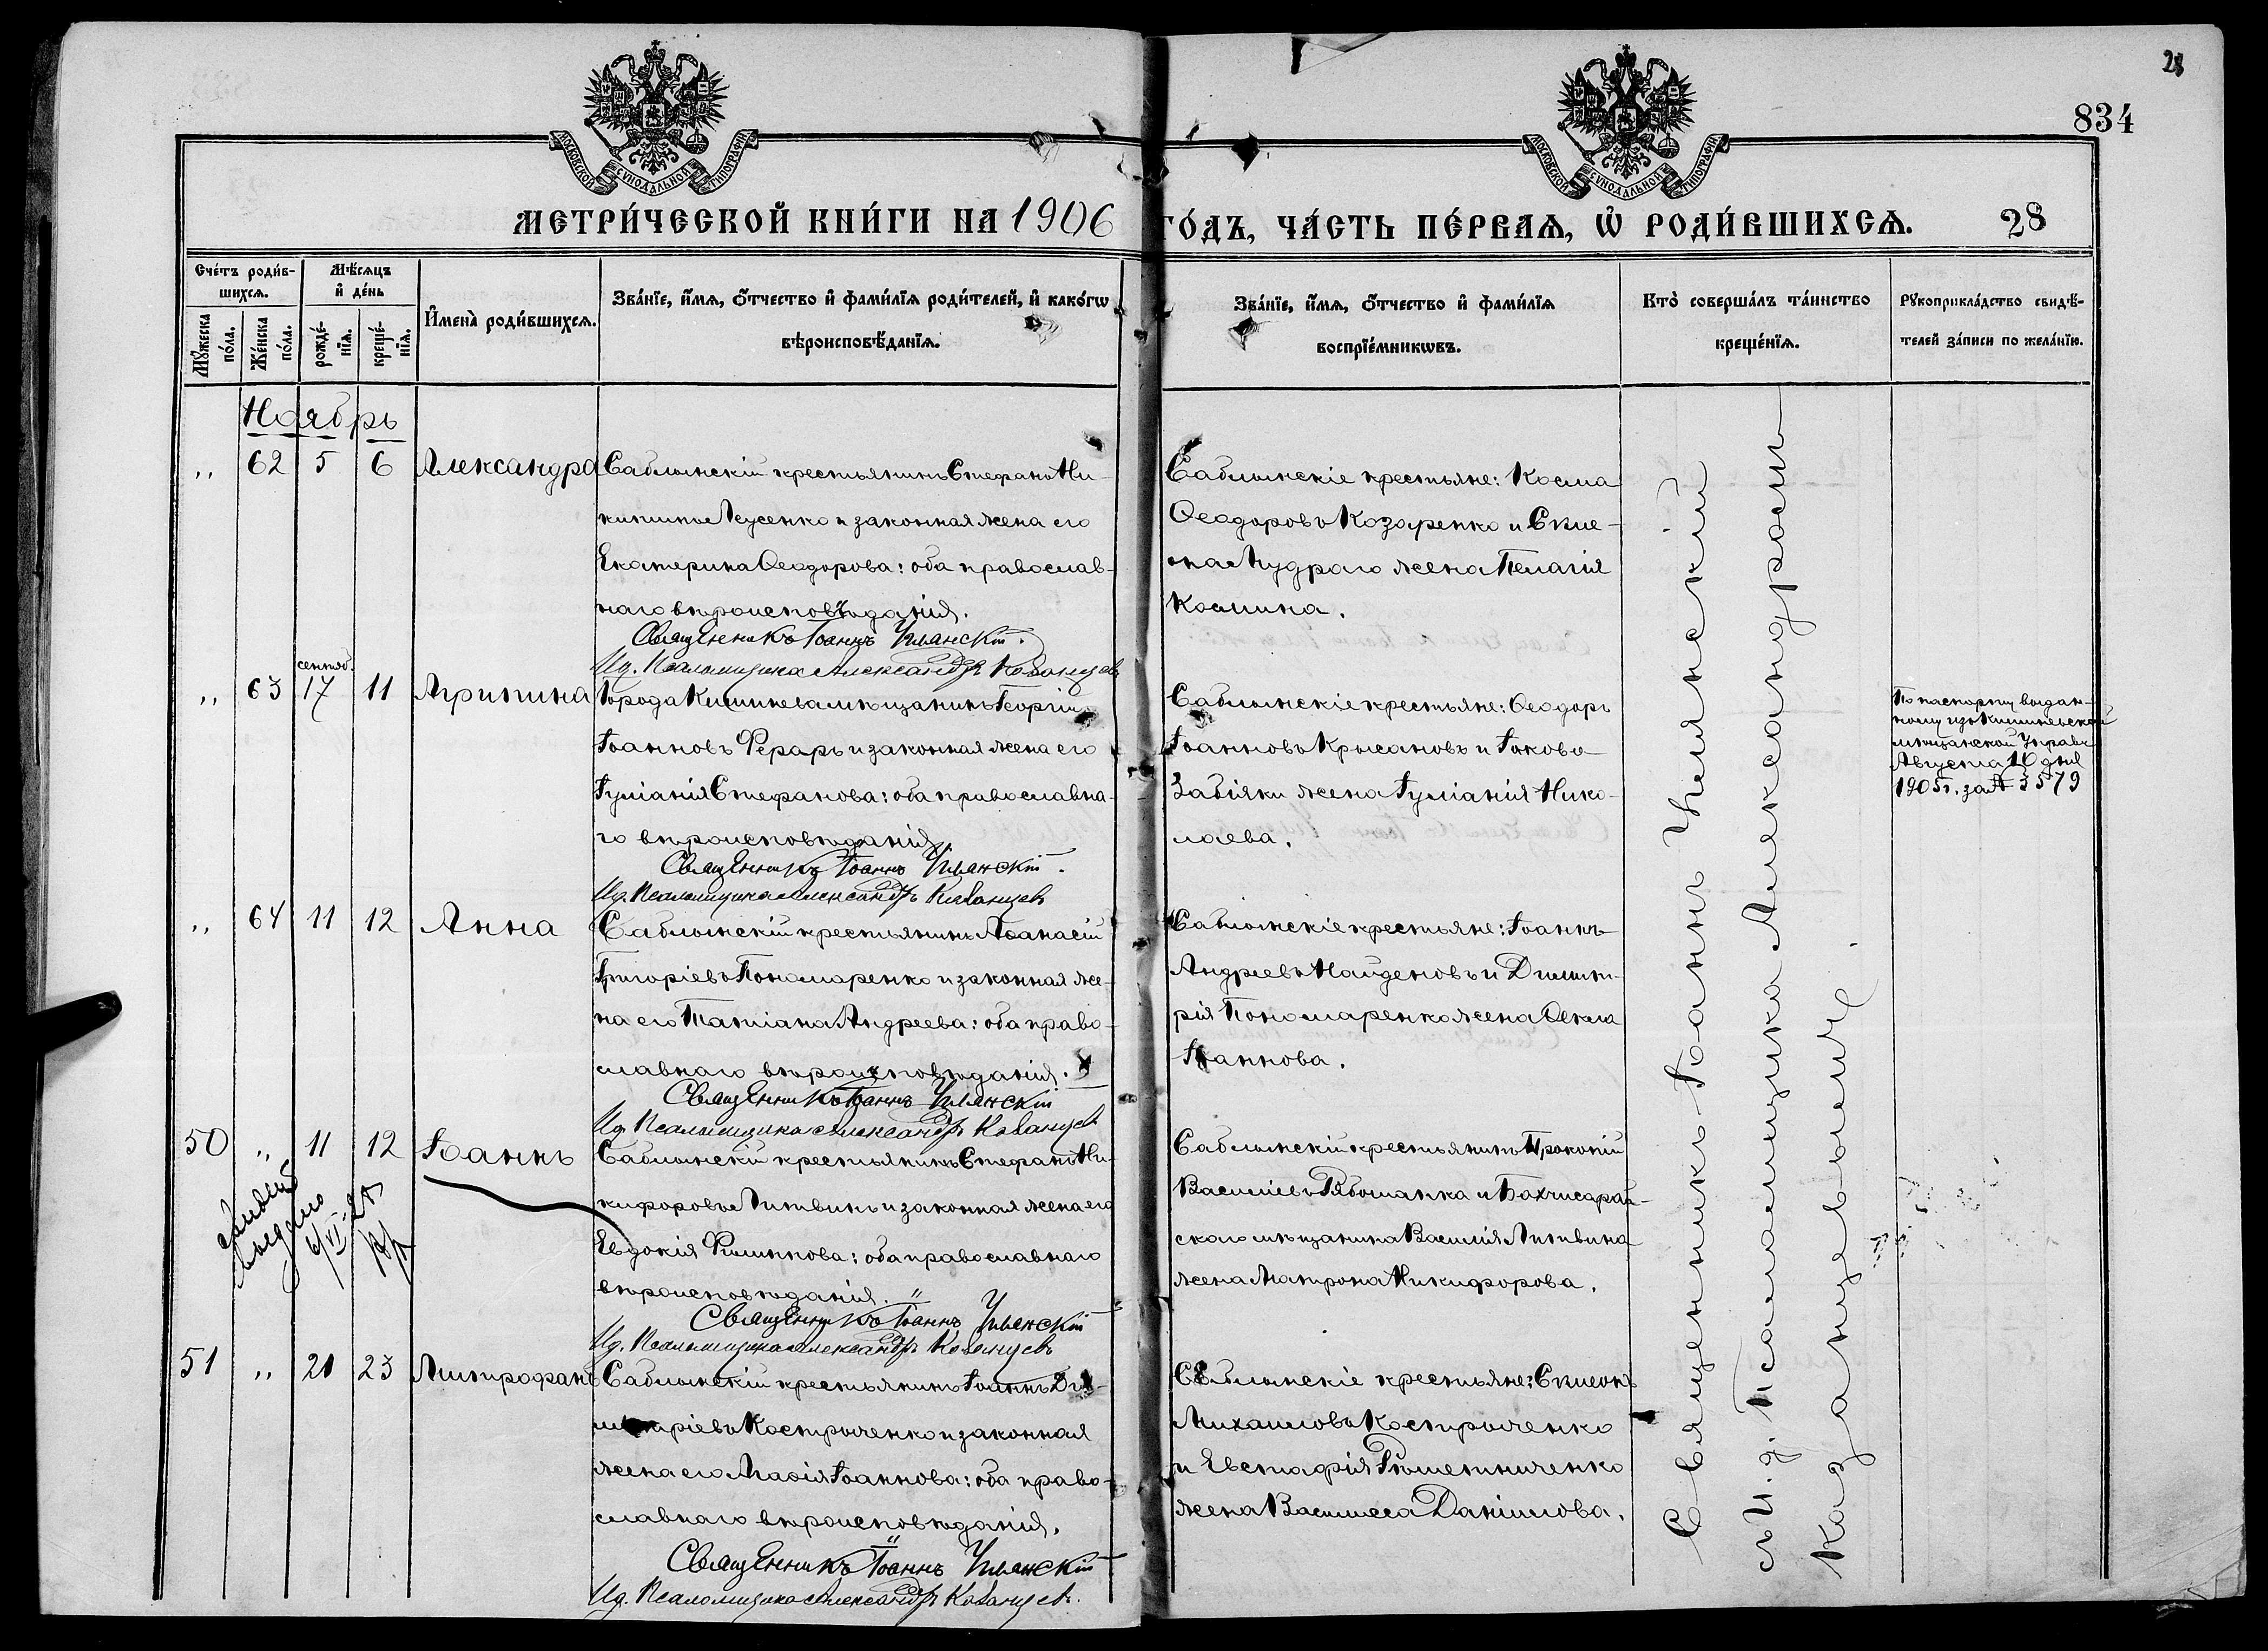 28
834
МОСКОВСКОЙ СѴНОДАЛЬНОЙ ТИПОГРАФІИ
МОСКОВСКОЙ СѴНОДАЛЬНОЙ ТИПОГРАФІИ
МЕТРИ́ЧЕСКОЙ КНИ́ГИ НА 1906 ГО́ДЪ, ЧА́СТЬ ПЕ́РВАѦ, Ѡ҆ РОДИ́ВШИХСѦ. 28
Сче́тъ роди́в-
шихсѧ.
Мꙋ́жеска по́ла.
Же́нска по́ла.
Мѣ́сѧцъ
и҆ де́нь
рожде́-нїѧ.
креще́-нїѧ.
И҆мена̀ роди́вшихсѧ.
Зва́нїе, и҆́мѧ, ѻ҆́тчество и҆ фами́лїѧ роди́телей, и҆ како́гѡ
вѣроисповѣ́данїѧ.
Зва́нїе, и҆́мѧ, ѻ҆́тчество и҆ фами́лїѧ
воспрїе́мникѡвъ.
Кто̀ соверша́лъ та́инство
креще́нїѧ.
Рꙋкоприкла́дство свидѣ́-
телей за́писи по жела́нїю.
Ноябрь
„ 62 5 6 Александра
Саблынскій крестьянинъ Стефанъ Ни-
китинъ Лусенко и законная жена его
Екатерина Ѳеодорова: оба православ-
наго вѣроисповѣданія.
Священникъ Іоаннъ
Ид. Псаломщика Александръ Казанцевъ
Саблынскіе крестьяне: Косма
Ѳеодоровъ Козаренко и Симе-
она Мудраго жена Пелагія
Космина.
„ 63 сентяб. 17 11 Агрипина
Города Кишинева мѣщанинъ Георгій
Іоанновъ Ферарь и законная жена его
Іуліанія Стефанова: оба православна-
го вѣроисповѣданія
Священникъ Іоаннъ
Ид. Псаломщика Александръ Казанцевъ
Саблынскіе крестьяне: Ѳеодоръ
Іоанновъ Крысановъ и Іакова
Забіяки жена Іуліанія Нико-
лаева.
По паспорту выдан-
ному изъ Кишиневской
мѣщанской Управы
Августа 10 дня
1905 г. за № 3579
„ 64 11 12 Анна
Саблынскій крестьянинъ Аѳанасій
Григоріевъ Пономаренко и законная же-
на его Татіана Андреева: оба право-
славнаго вѣроисповѣданія.
Священникъ Іоаннъ
Ид. Псаломщика Александръ Казанцевъ
Саблынскіе крестьяне: Іоаннъ
Андреевъ Найденовъ и Димит-
рія Пономаренко жена Ѳекла
Іоаннова.
50 „ 11 12 Іоаннъ
выдано
Саблынскій крестьянинъ Стефанъ Ни-
кифоровъ Литвинъ и законная жена его
Евдокія Филиппова: оба православнаго
вѣроисповѣданія.
Священникъ Іоаннъ
Ид. Псаломщика Александръ Казанцевъ
Саблынскій крестьянинъ Прокопій
Василіевъ Рябошапка и Бахчисарай-
скаго мѣщанина Василія Литвина
жена Матрона Никифорова.
51 „ 21 23 Митрофанъ
Саблынскій крестьянинъ Іоаннъ Ди-
митріевъ Костриченко и законная
жена его Марія Іоаннова: оба право-
славнаго вѣроисповѣданія.
Священникъ Іоаннъ
Ид. Псаломщика Александръ Казанцевъ.
Саблынскіе крестьяне: Симеонъ
Михаиловъ Костриченко
и Евстафія Рѣшетниченко
жена Василисса Даніилова.
Священникъ Іоаннъ
съ И. д. Псаломщика Александромъ
Казанцевымъ.